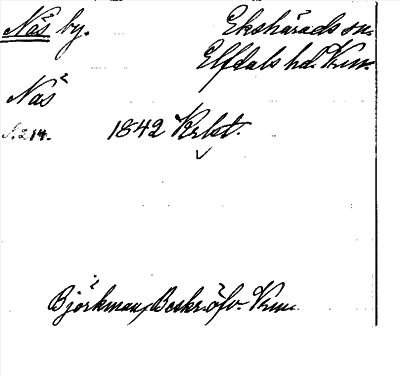 Näs by. Ekshärads sn.
Elfdals hd. Vrm.
Näs
s. 214. 1842 Krlst.
Björkman, Beskr. öfv. Vrm.